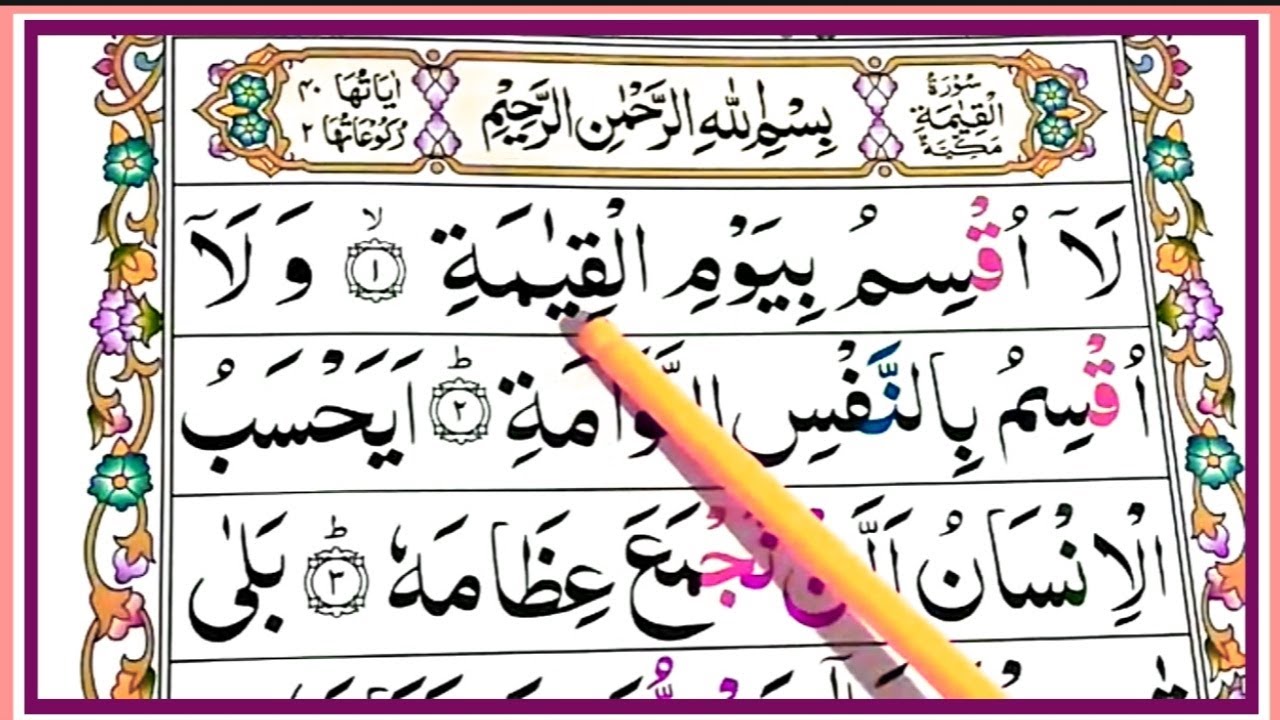 سُوْرَةُ الْقِيٰمَةِ مَكِّيَّةٌ
بِسْمِ اللّٰهِ الرَّحْمٰنِ الرَّحِيْمِ
اٰيَاتُهَا ٤٠
رُكُوْعَاتُهَا ٢
لَآ اُقْسِمُ بِيَوْمِ الْقِيٰمَةِ ۙ﴿١﴾ وَلَآ
اُقْسِمُ بِالنَّفْسِ اللَّوَّامَةِ ؕ﴿٢﴾ اَيَحْسَبُ
الْاِنْسَانُ اَلَّنْ نَّجْمَعَ عِظَامَهٗ ؕ﴿٣﴾ بَلٰى